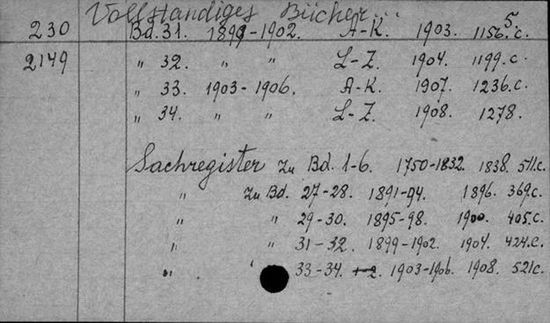 Vollständiges Bücher...
5.
230 Bd. 31. 1899-1902. A-K. 1903. 1156.c.
2149 " 32. " " L-Z. 1904. 1199.c.
" 33. 1903-1906. A-K. 1907. 1236.c.
" 34. " " L-Z. 1908. 1278.
Sachregister zu Bd. 1-6. 1750-1832. 1838. 511.c.
" zu Bd. 27-28. 1891-94. 1896. 369.c.
" " 29-30. 1895-98. 1900. 405.c.
" " 31-32. 1899-1902. 1904. 424.c.
" " 33-34. 1903-1906. 1908. 521c.